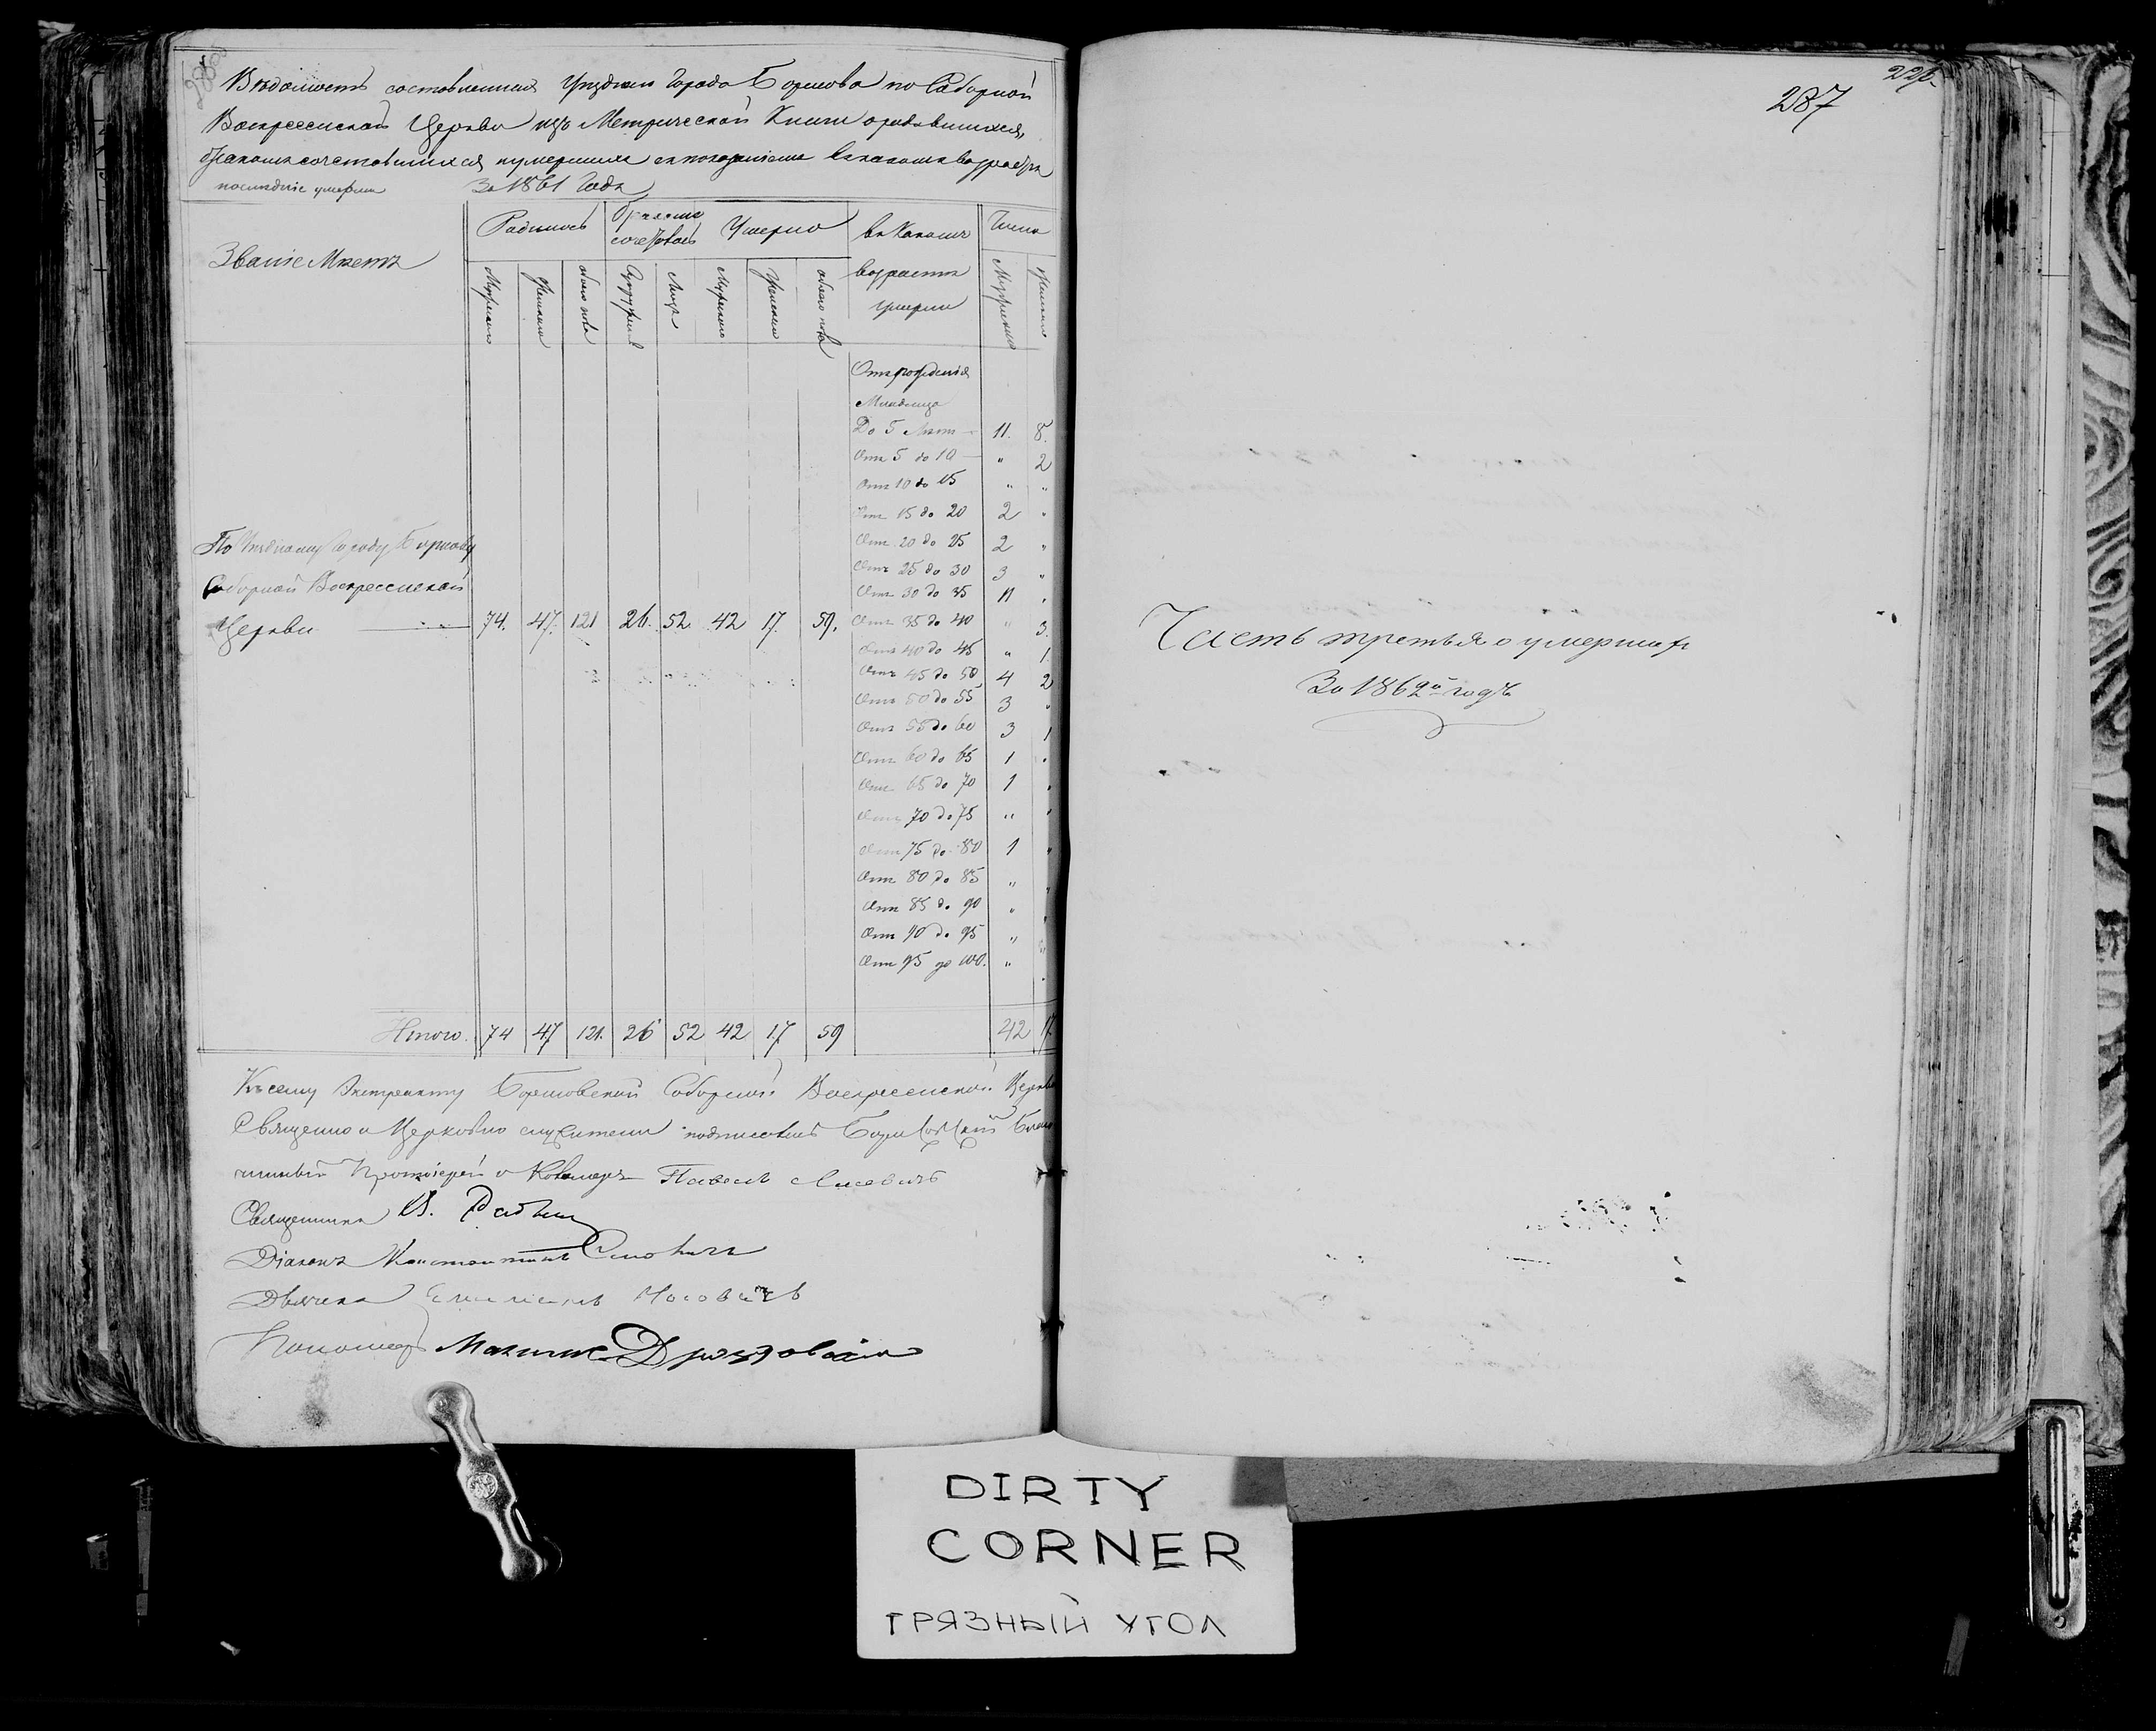 Вѣдомость составленная Уѣзднаго Города Борисова по Соборной
Воскресенской Церкви изъ Метрической Книги о родившихся,
бракомъ сочетавшихся и умершихъ съ показаніемъ въ какомъ возрастѣ
послѣдніе умерли За 1861 Годъ
Званіе Мѣстъ
Родилось
бракомъ сочеталось
Умерло
въ Какомъ возрастѣ умерли
Число
Мужеска
Женска
обоего пола
Супружествъ
Лицъ
Мужеска
Женска
обоего пола
Мужеска
Женска
Отъ рожденія
Младенца
До 5 Лѣтъ — 11. 8.
Отъ 5 до 10 — " 2
Отъ 10 до 15 " "
Отъ 15 до 20 2 "
Отъ 20 до 25 2 "
Отъ 25 до 30 3 "
Отъ 30 до 35 11 "
По Уѣздному Городу Борисову
Соборной Воскресенской
Церкви 74. 47. 121 26. 52 42 17. 59.
Отъ 35 до 40 " 3.
Отъ 40 до 45 " 1
Отъ 45 до 50 4 2
Отъ 50 до 55 3 "
Отъ 55 до 60 3 1
Отъ 60 до 65 1 "
Отъ 65 до 70 1 "
Отъ 70 до 75 " "
Отъ 75 до 80 1 "
Отъ 80 до 85 " "
Отъ 85 до 90 " "
Отъ 90 до 95 " "
Отъ 95 до 100. " "
Итого. 74 47 121. 26 52 42 17 59 42 17
Къ сему Экстракту Борисовской Соборной Воскресенской Церкви
Священно и Церковно служители подписались Борисовскій Благо
чинный Протоіерей Павелъ
Священникъ
Діаконъ Константинъ
Дьячекъ
Пономарь Максимъ
287
Часть третья о умершихъ
За 1862й годъ
DIRTY
CORNER
ГРЯЗНЫЙ УГОЛ